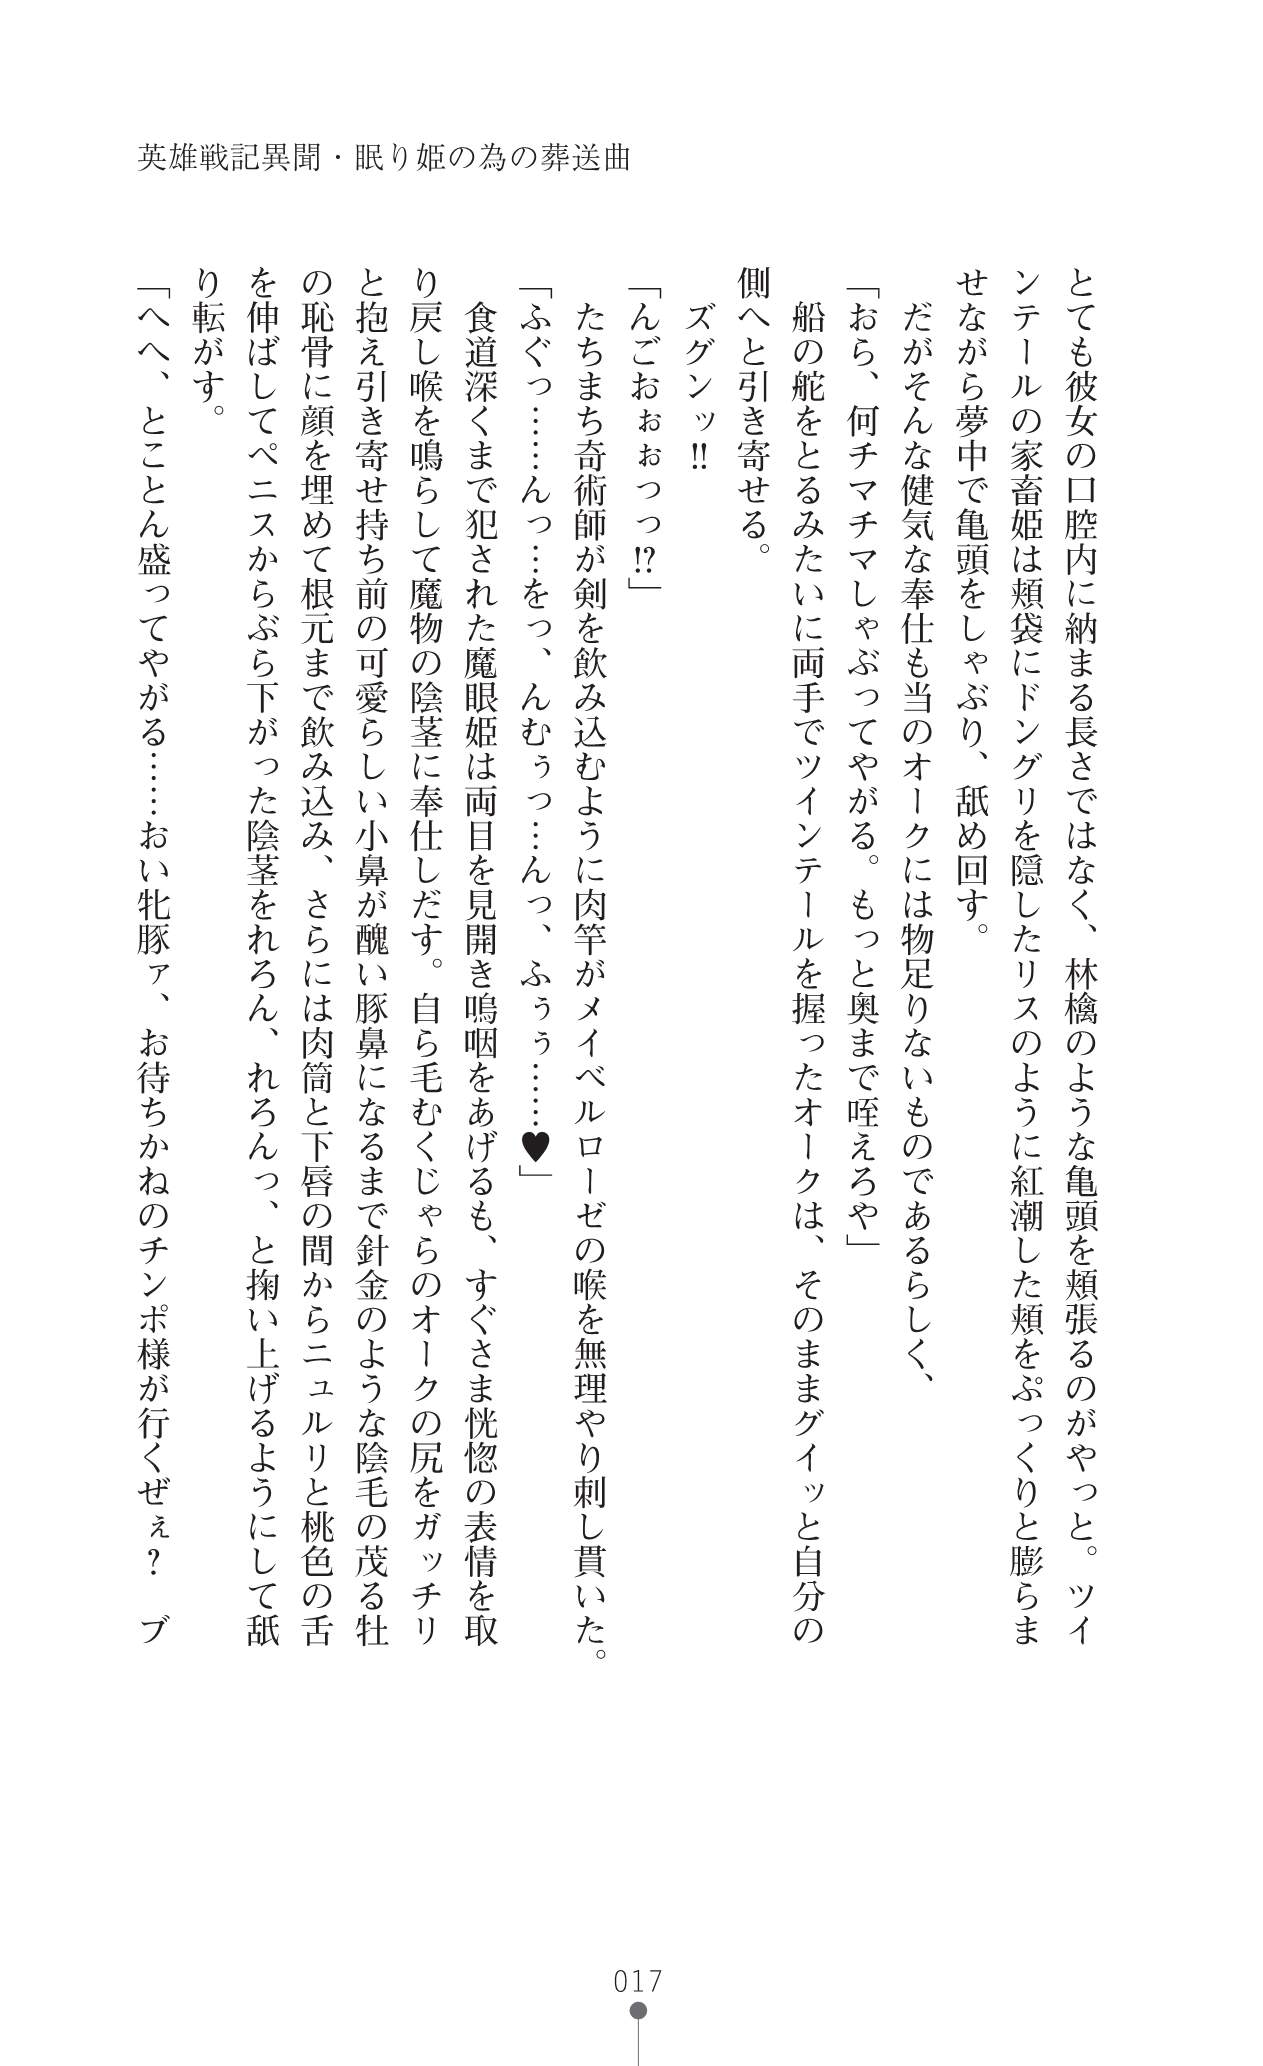 英雄戦記異聞・眠り姫の為の葬送曲
とても彼女の口腔内に納まる長さではなく、林檎のような亀頭を頬張るのがやっと。ツイ
ンテールの家畜姫は頬袋にドングリを隠したリスのように紅潮した頬をぷっくりと膨らま
せながら夢中で亀頭をしゃぶり、舐め回す。
　だがそんな健気な奉仕も当のオークには物足りないものであるらしく、
「おら、何チマチマしゃぶってやがる。もっと奥まで咥えろや」
　船の舵をとるみたいに両手でツインテールを握ったオークは、そのままグイッと自分の
側へと引き寄せる。
　ズグンッ‼
「んごおぉぉっっ⁉」
　たちまち奇術師が剣を飲み込むように肉竿がメイベルローゼの喉を無理やり刺し貫いた。
「ふぐっ……んっ…をっ、んむぅっ…んっ、ふぅぅ……♥」
　食道深くまで犯された魔眼姫は両目を見開き嗚咽をあげるも、すぐさま恍惚の表情を取
り戻し喉を鳴らして魔物の陰茎に奉仕しだす。自ら毛むくじゃらのオークの尻をガッチリ
と抱え引き寄せ持ち前の可愛らしい小鼻が醜い豚鼻になるまで針金のような陰毛の茂る牡
の恥骨に顔を埋めて根元まで飲み込み、さらには肉筒と下唇の間からニュルリと桃色の舌
を伸ばしてペニスからぶら下がった陰茎をれろん、れろんっ、と掬い上げるようにして舐
り転がす。
「へへ、とことん盛ってやがる……おい牝豚ァ、お待ちかねのチンポ様が行くぜぇ？　ブ
017